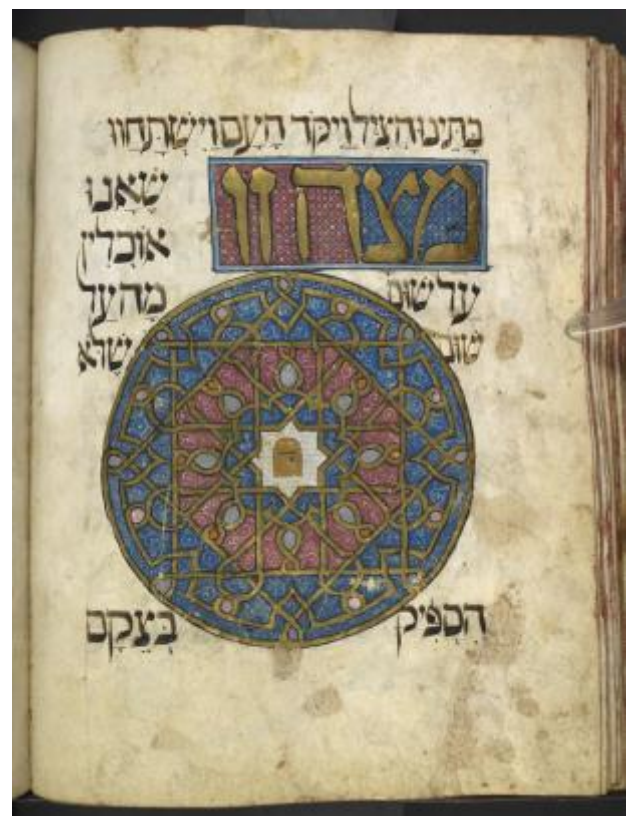 בתינו הציל ויקד העם וישתחוו
מצה זו שאנו
אוכלין
על שום מה על
שום שלא
הספיק בצקם